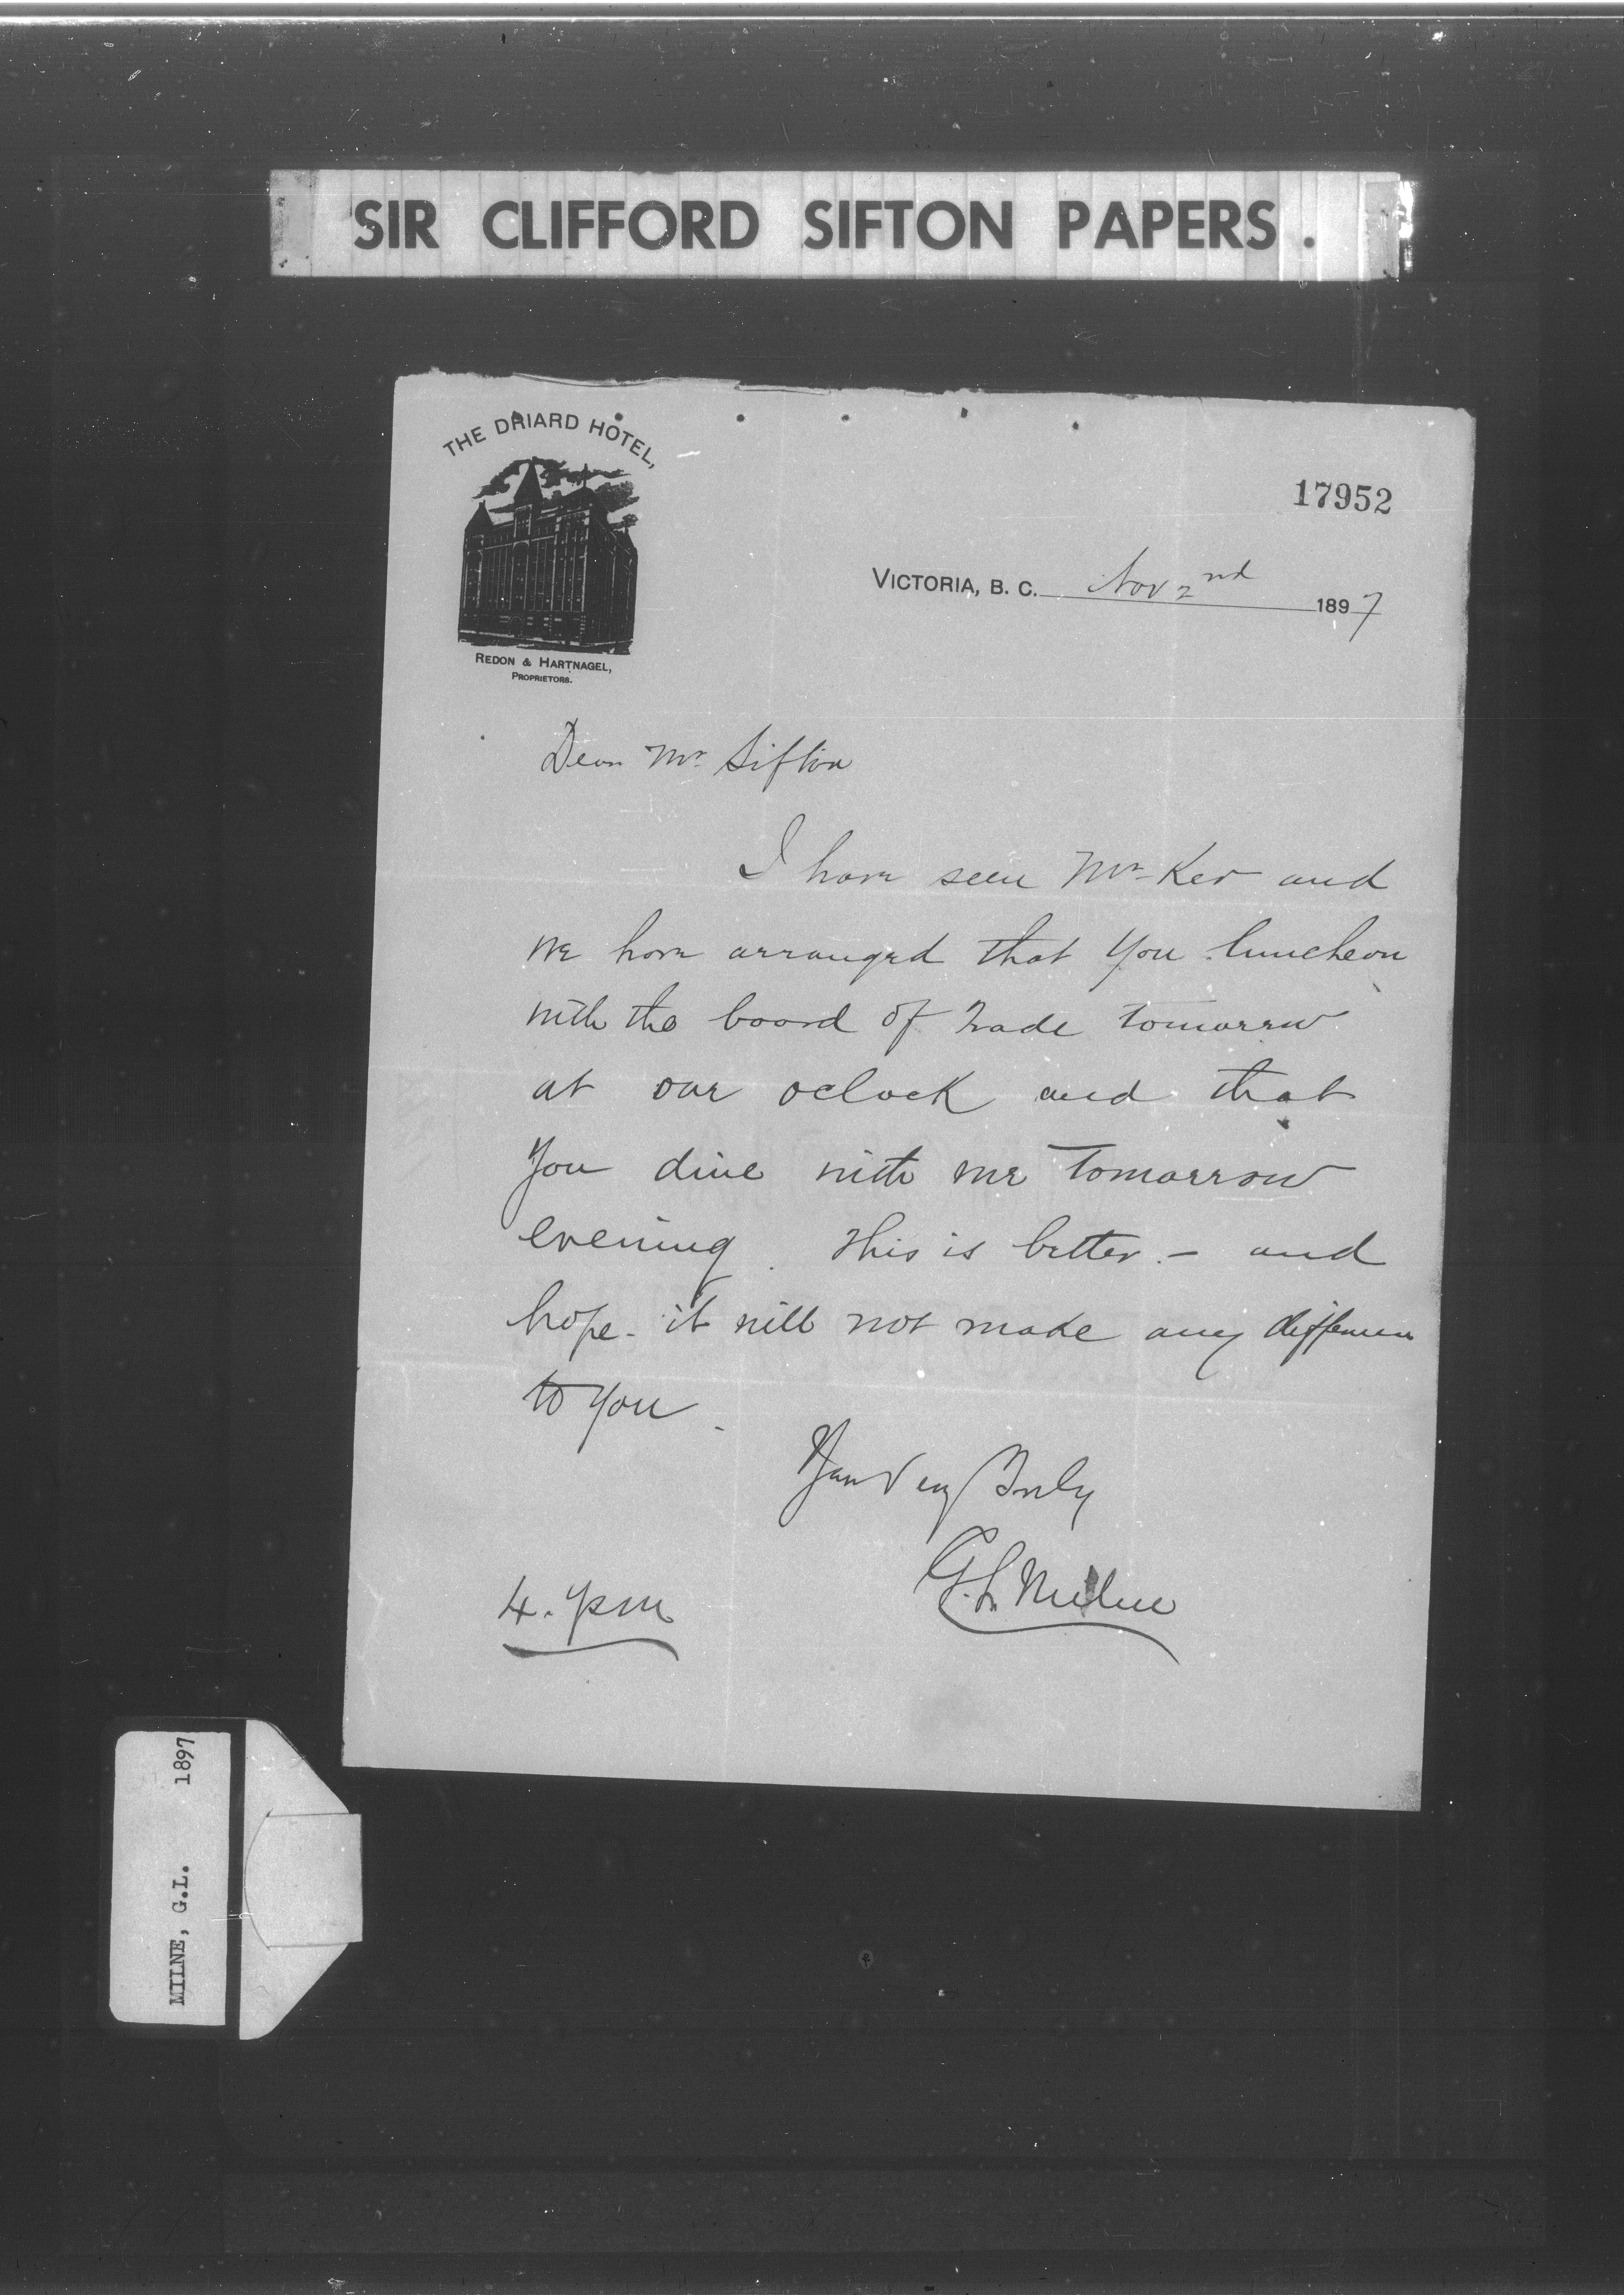 SIR CLIFFORD SIFTON PAPERS.
THE DRIARD HOTEL,
REDON & HARTNAGEL,
PROPRIETORS.
17952
VICTORIA, B. C. Nov 2nd 1897
Dear Mr. Sifton
I have seen Mr Ker and
we have arranged that you luncheon
with the board of Trade tomorrow
at one oclock and that
you dine with me tomorrow
evening. This is better - and
hope - it will not make any difference
to you.
Yours Very Truly
G. L. Milne
4. pm
MILNE, G.L. 1897